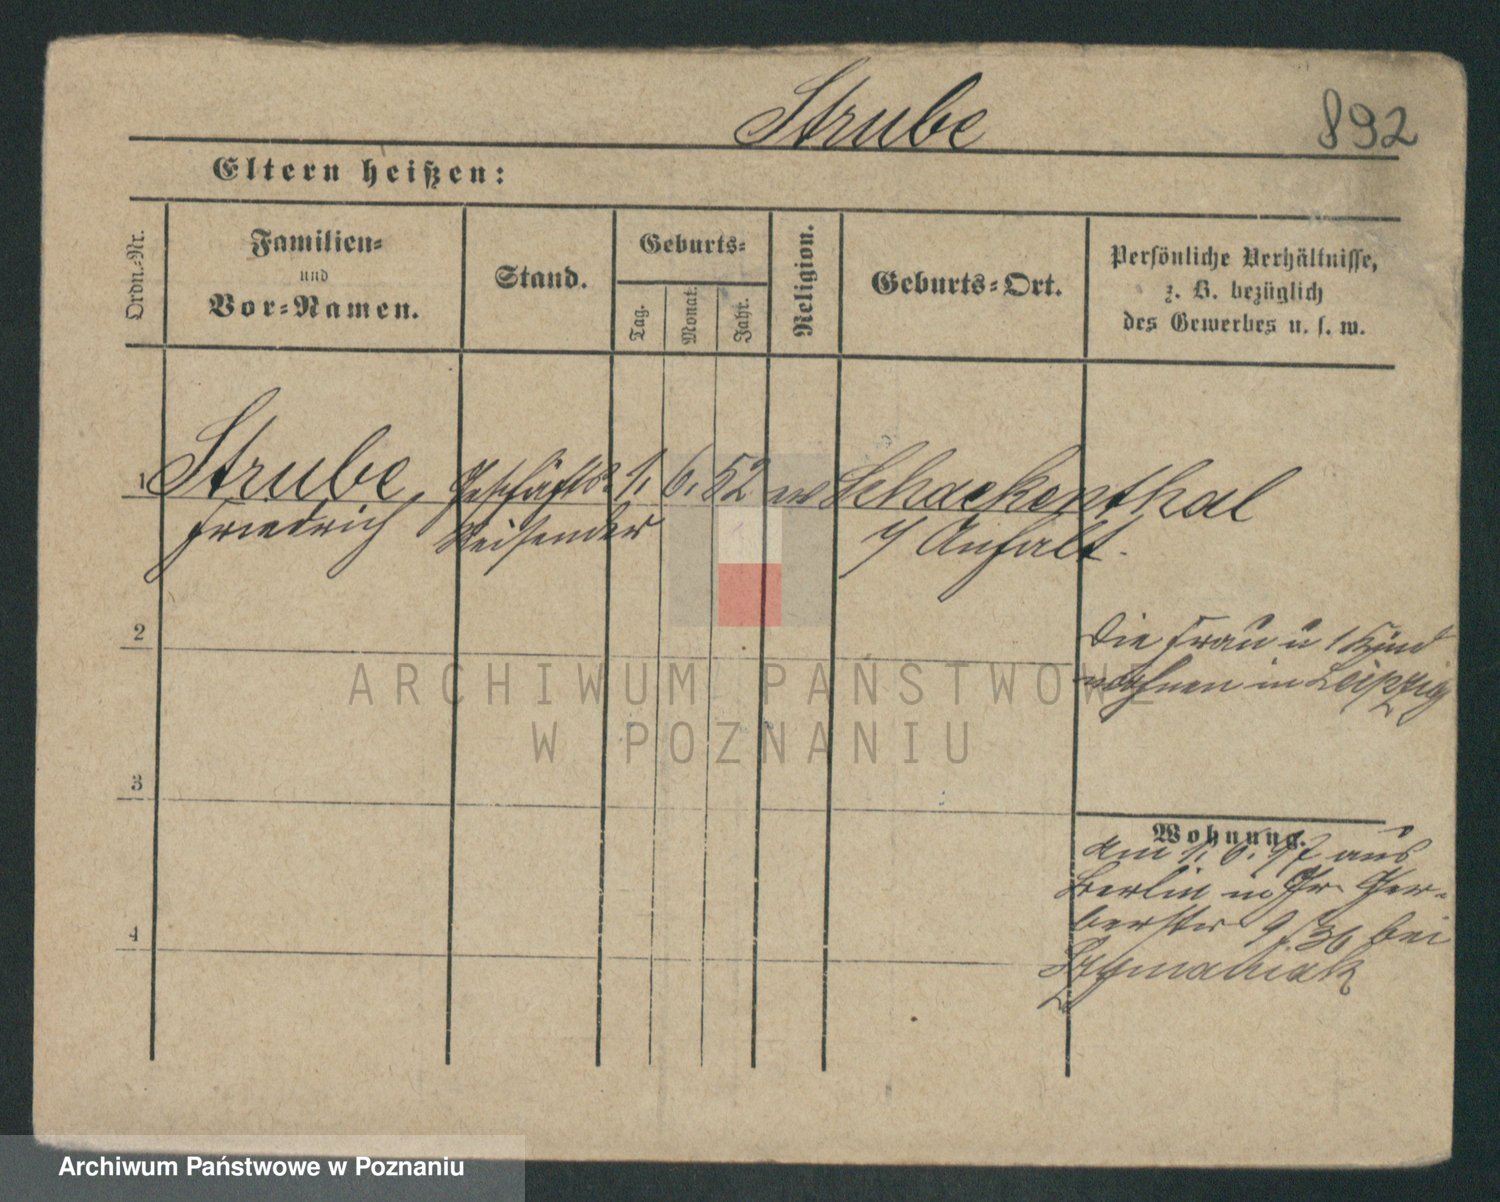 Strube
892
Eltern heißen:
Ordn.-Nr.
Familien-
und
Vor-Namen.
Stand.
Geburts-
Tag.
Monat.
Jahr.
Religion.
Geburts-Ort.
Persönliche Verhältnisse,
z. B. bezüglich
des Gewerbes u. s. w.
1 Strube Geschäfts- 1. 6. 52 ev Schackenthal
Friedrich Reisender i/ Anhalt.
2
Die Frau u 1 Kind
wohnen in Leipzig
ARCHIWUM PAŃSTWOWE
W POZNANIU
3
Wohnung.
am 1. 6. 97 aus
Berlin n. Gr. Ger-
berstr 9/36 bei
4
Szymaniak
Archiwum Państwowe w Poznaniu